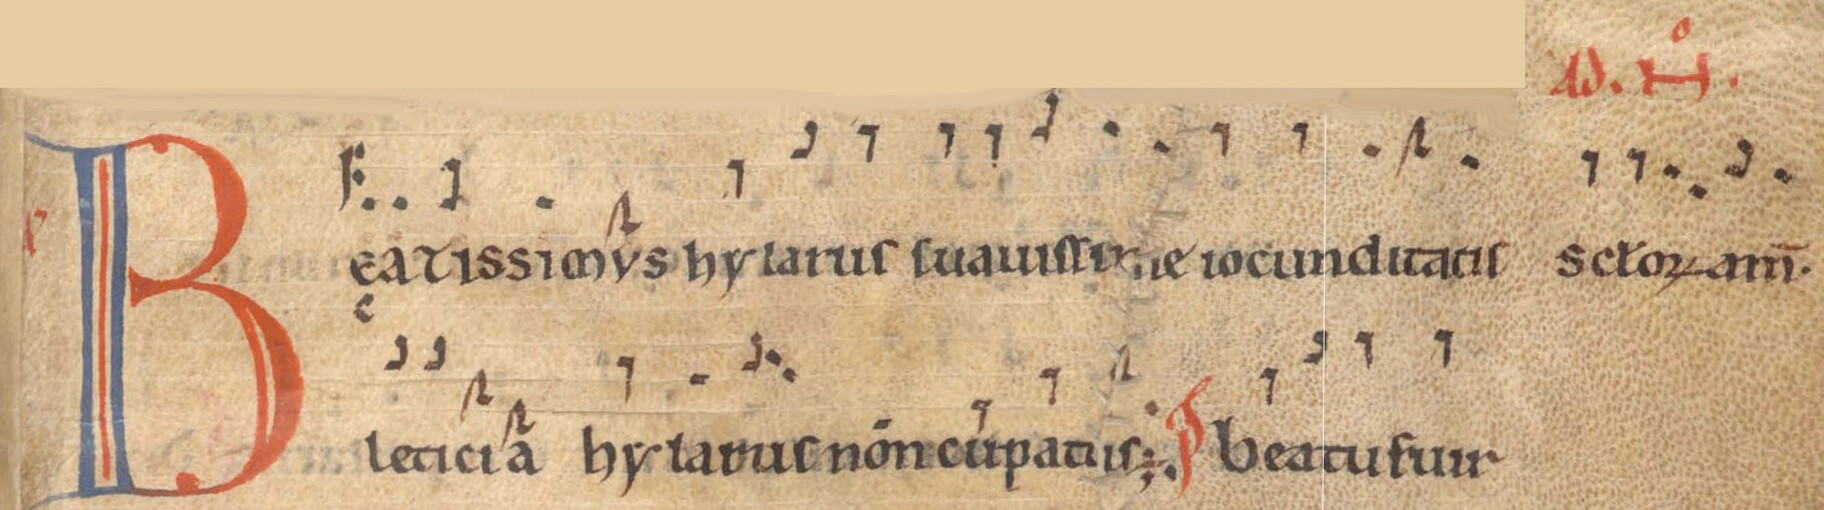 BEATISSIMVS hylarius suauissime iocunditatis sctoꝝ am̄.
leticia hylarius nōn cūpatus; beatus uir